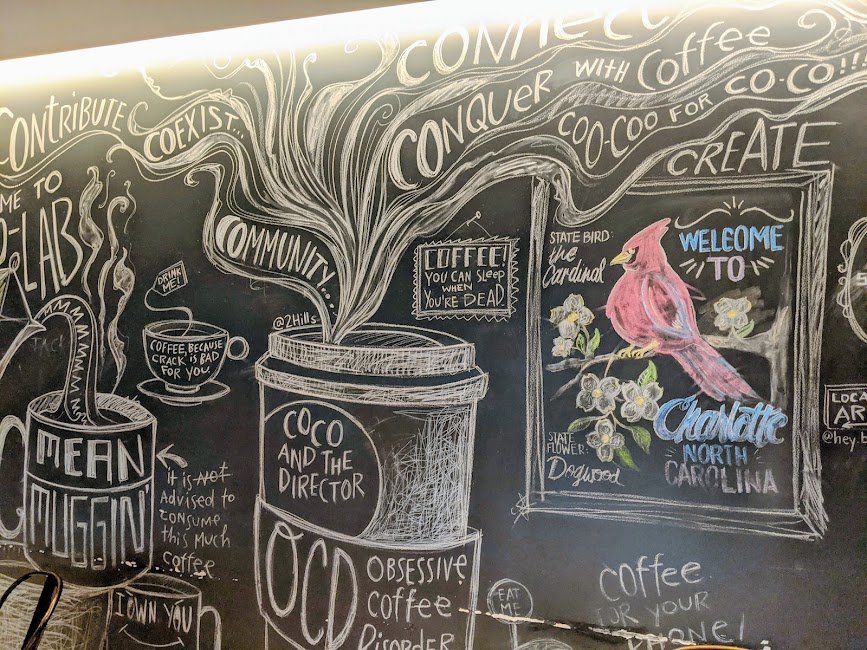 CONTRIBUTE
COEXIST...
CONNECT
CONQUER WITH Coffee
COO-COO FOR CO-CO!!!
CREATE
COMMUNITY...
ME TO
-LAB
DRINK
ME!
COFFEE, BECAUSE
CRACK IS BAD
FOR YOU
@2Hills
COFFEE!
YOU CAN SLEEP
WHEN
YOU'RE DEAD.
STATE BIRD:
the
Cardinal
WELCOME
TO
Charlotte
NORTH
CAROLINA
STATE
FLOWER:
Dogwood
LOCA
AR
@hey.b
MEAN
MUGGIN'
it is not
ADVISED to
CONSUME
this MUCH
Coffee
I OWN YOU
COCO
AND THE
DIRECTOR
OCD
OBSESSIVE
COFFEE
DISORDER
EAT
ME
COFFEE
FOR YOUR
PHONE!